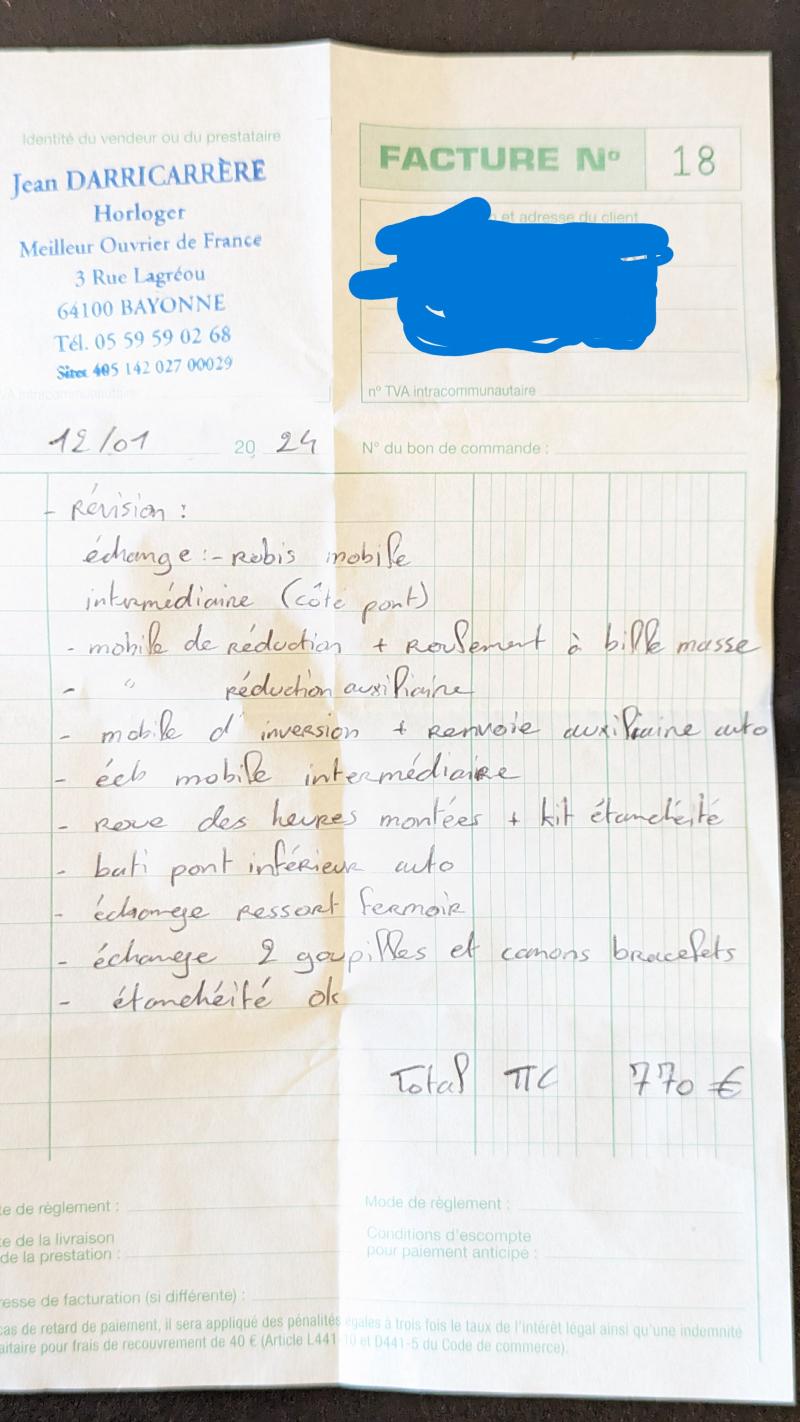 Identité du vendeur ou du prestataire
Jean DARRICARRÈRE
Horloger
Meilleur Ouvrier de France
3 Rue Lagréou
64100 BAYONNE
Tél. 05 59 59 02 68
Siret 405 142 027 00029
FACTURE Nº 18
et adresse du client
n° TVA intracommunautaire
12/01 20 24
N° du bon de commande :
- Révision :
échange :- Rubis mobile
intermédiaire (côté pont)
- mobile de réduction + Roulement à bille masse
- " réduction auxiliaire
- mobile d'inversion + Renvoie auxiliaire auto
- éch mobile intermédiaire
- Roue des heures montées + kit étanchéité
- bati pont inférieur auto
- échange ressort fermoir
- échange 2 goupilles et canons bracelets
- étanchéité ok
Total TTC 770 €
te de règlement :
Mode de règlement :
te de la livraison
de la prestation :
Conditions d'escompte
pour paiement anticipé :
resse de facturation (si différente) :
cas de retard de paiement, il sera appliqué des pénalités égales à trois fois le taux de l'intérêt légal ainsi qu'une indemnité
aitaire pour frais de recouvrement de 40 € (Article L441-10 et D441-5 du Code de commerce).